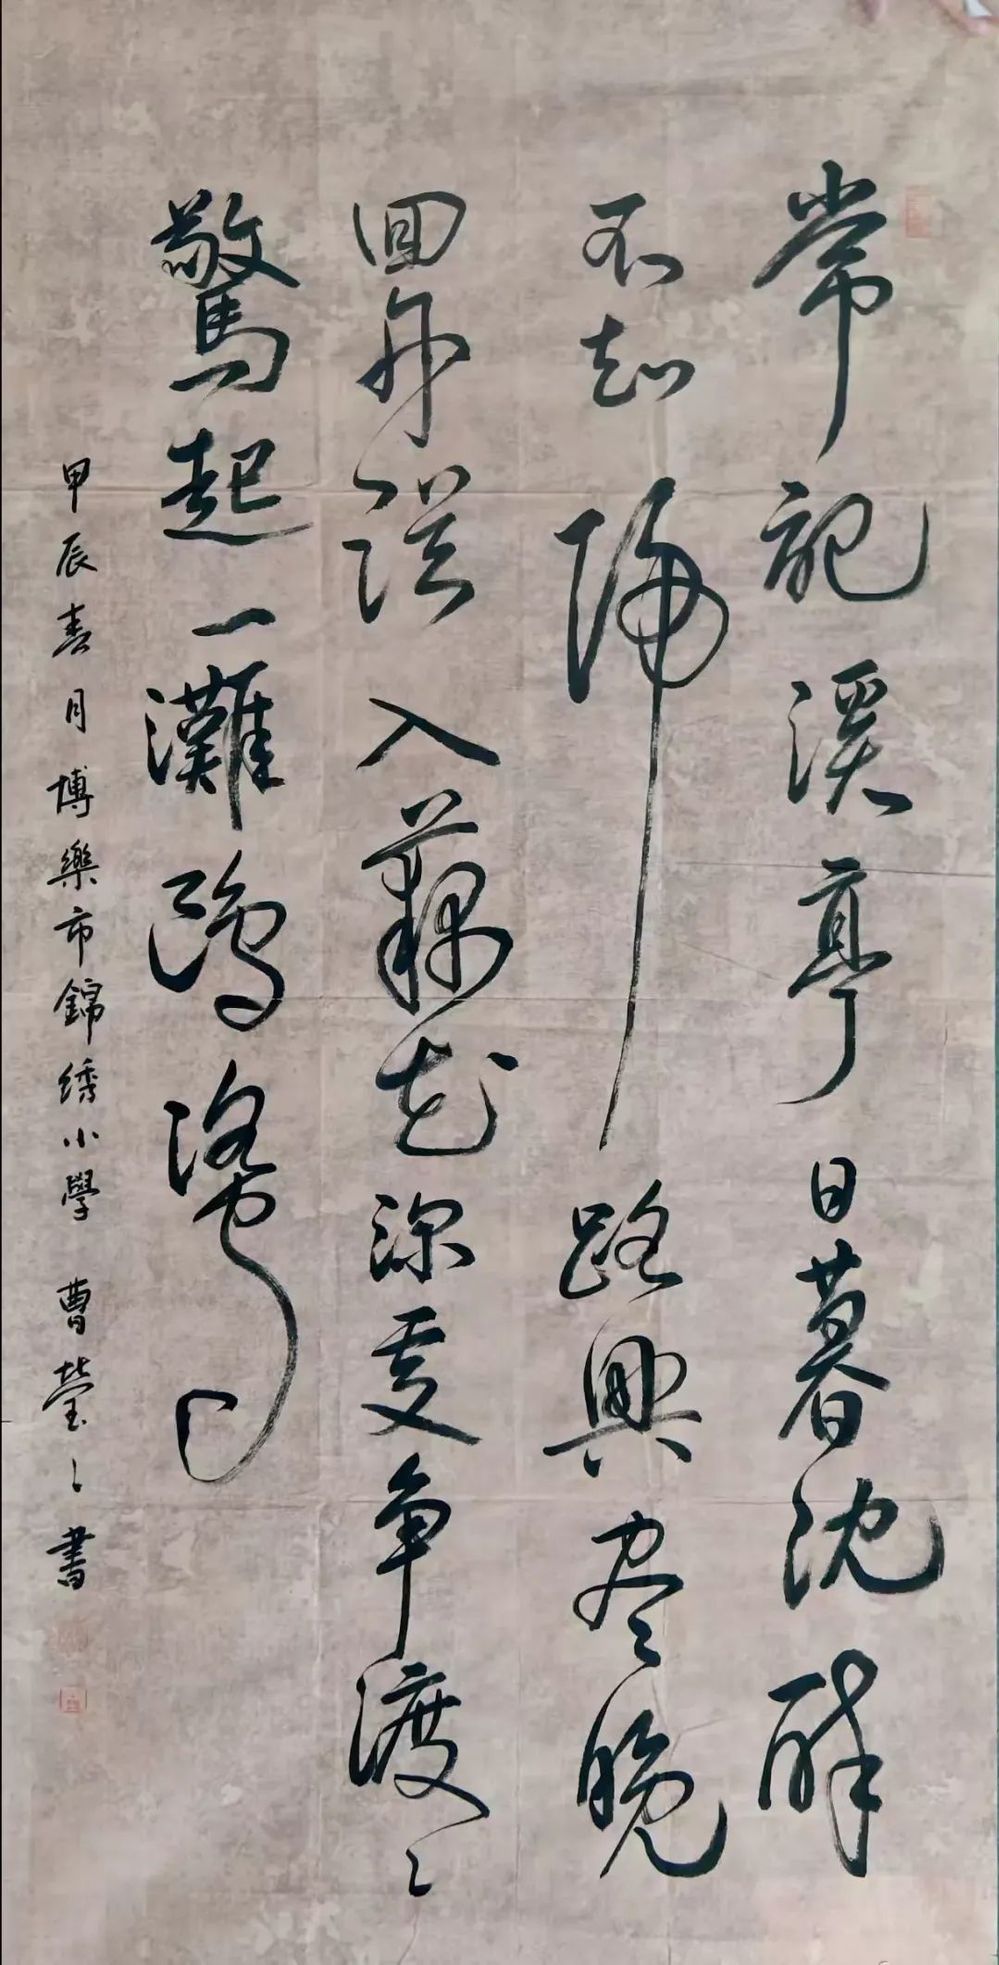 常記溪亭日暮沈醉
不知歸路興尽晚
回舟誤入藕花深處争渡〻
驚起一灘鷗鷺
甲辰春月博樂市錦綉小學 曹瑩〻書